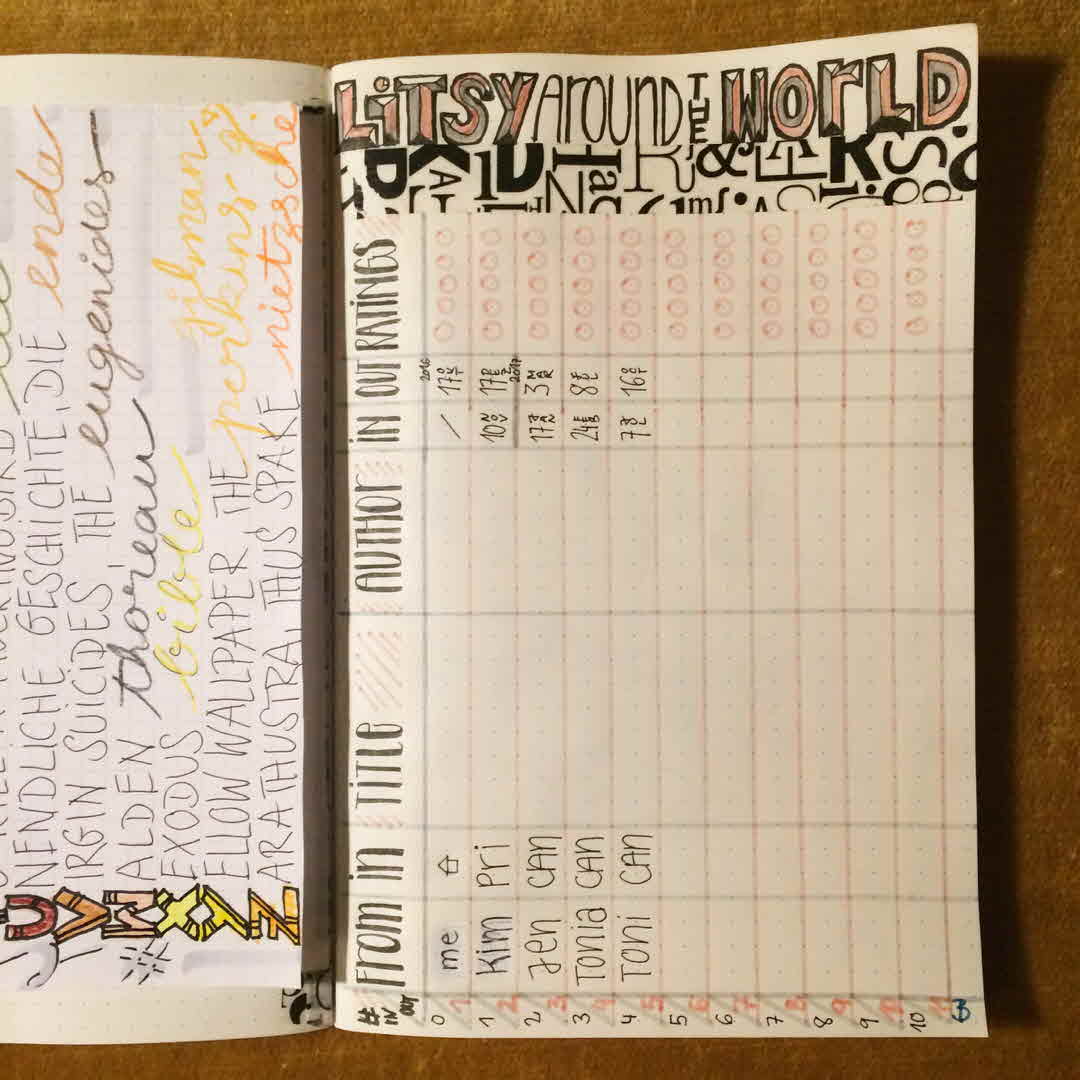 UNENDLICHE GESCHICHTE, DIE ende
VIRGIN SUICIDES, THE eugenides
WALDEN thoreau
EXODUS bible
YELLOW WALLPAPER, THE perkins-gilman
ZARATHUSTRA, THUS SPAKE nietzsche
LiTSY Around THE WOrLD
# IN OUT From in TiTLE AUTHOr in OUT RATiNGS
0 1 me / 2016 17 OCT
1 2 Kim Pri 10 NOV 17 DEZ
2 3 Jen CAN 17 JAN 2017 3 MAR
3 4 Tonia CAN 24 FEB 8 JUL
4 5 Toni CAN 7 JUL 16 OCT
5 6
6 7
7 8
8 9
9 10
10 11